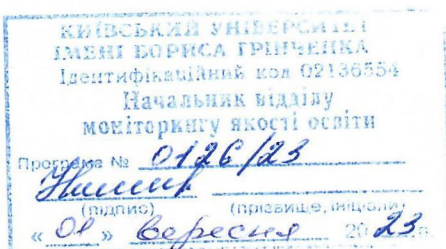 КИЇВСЬКИЙ УНІВЕРСИТЕТ
ІМЕНІ БОРИСА ГРІНЧЕНКА
Ідентифікаційний код 02136554
Начальник відділу
моніторингу якості освіти
Програма № 0126/23
(підпис) (прізвище, ініціали)
« 01 » вересня 2023 р.